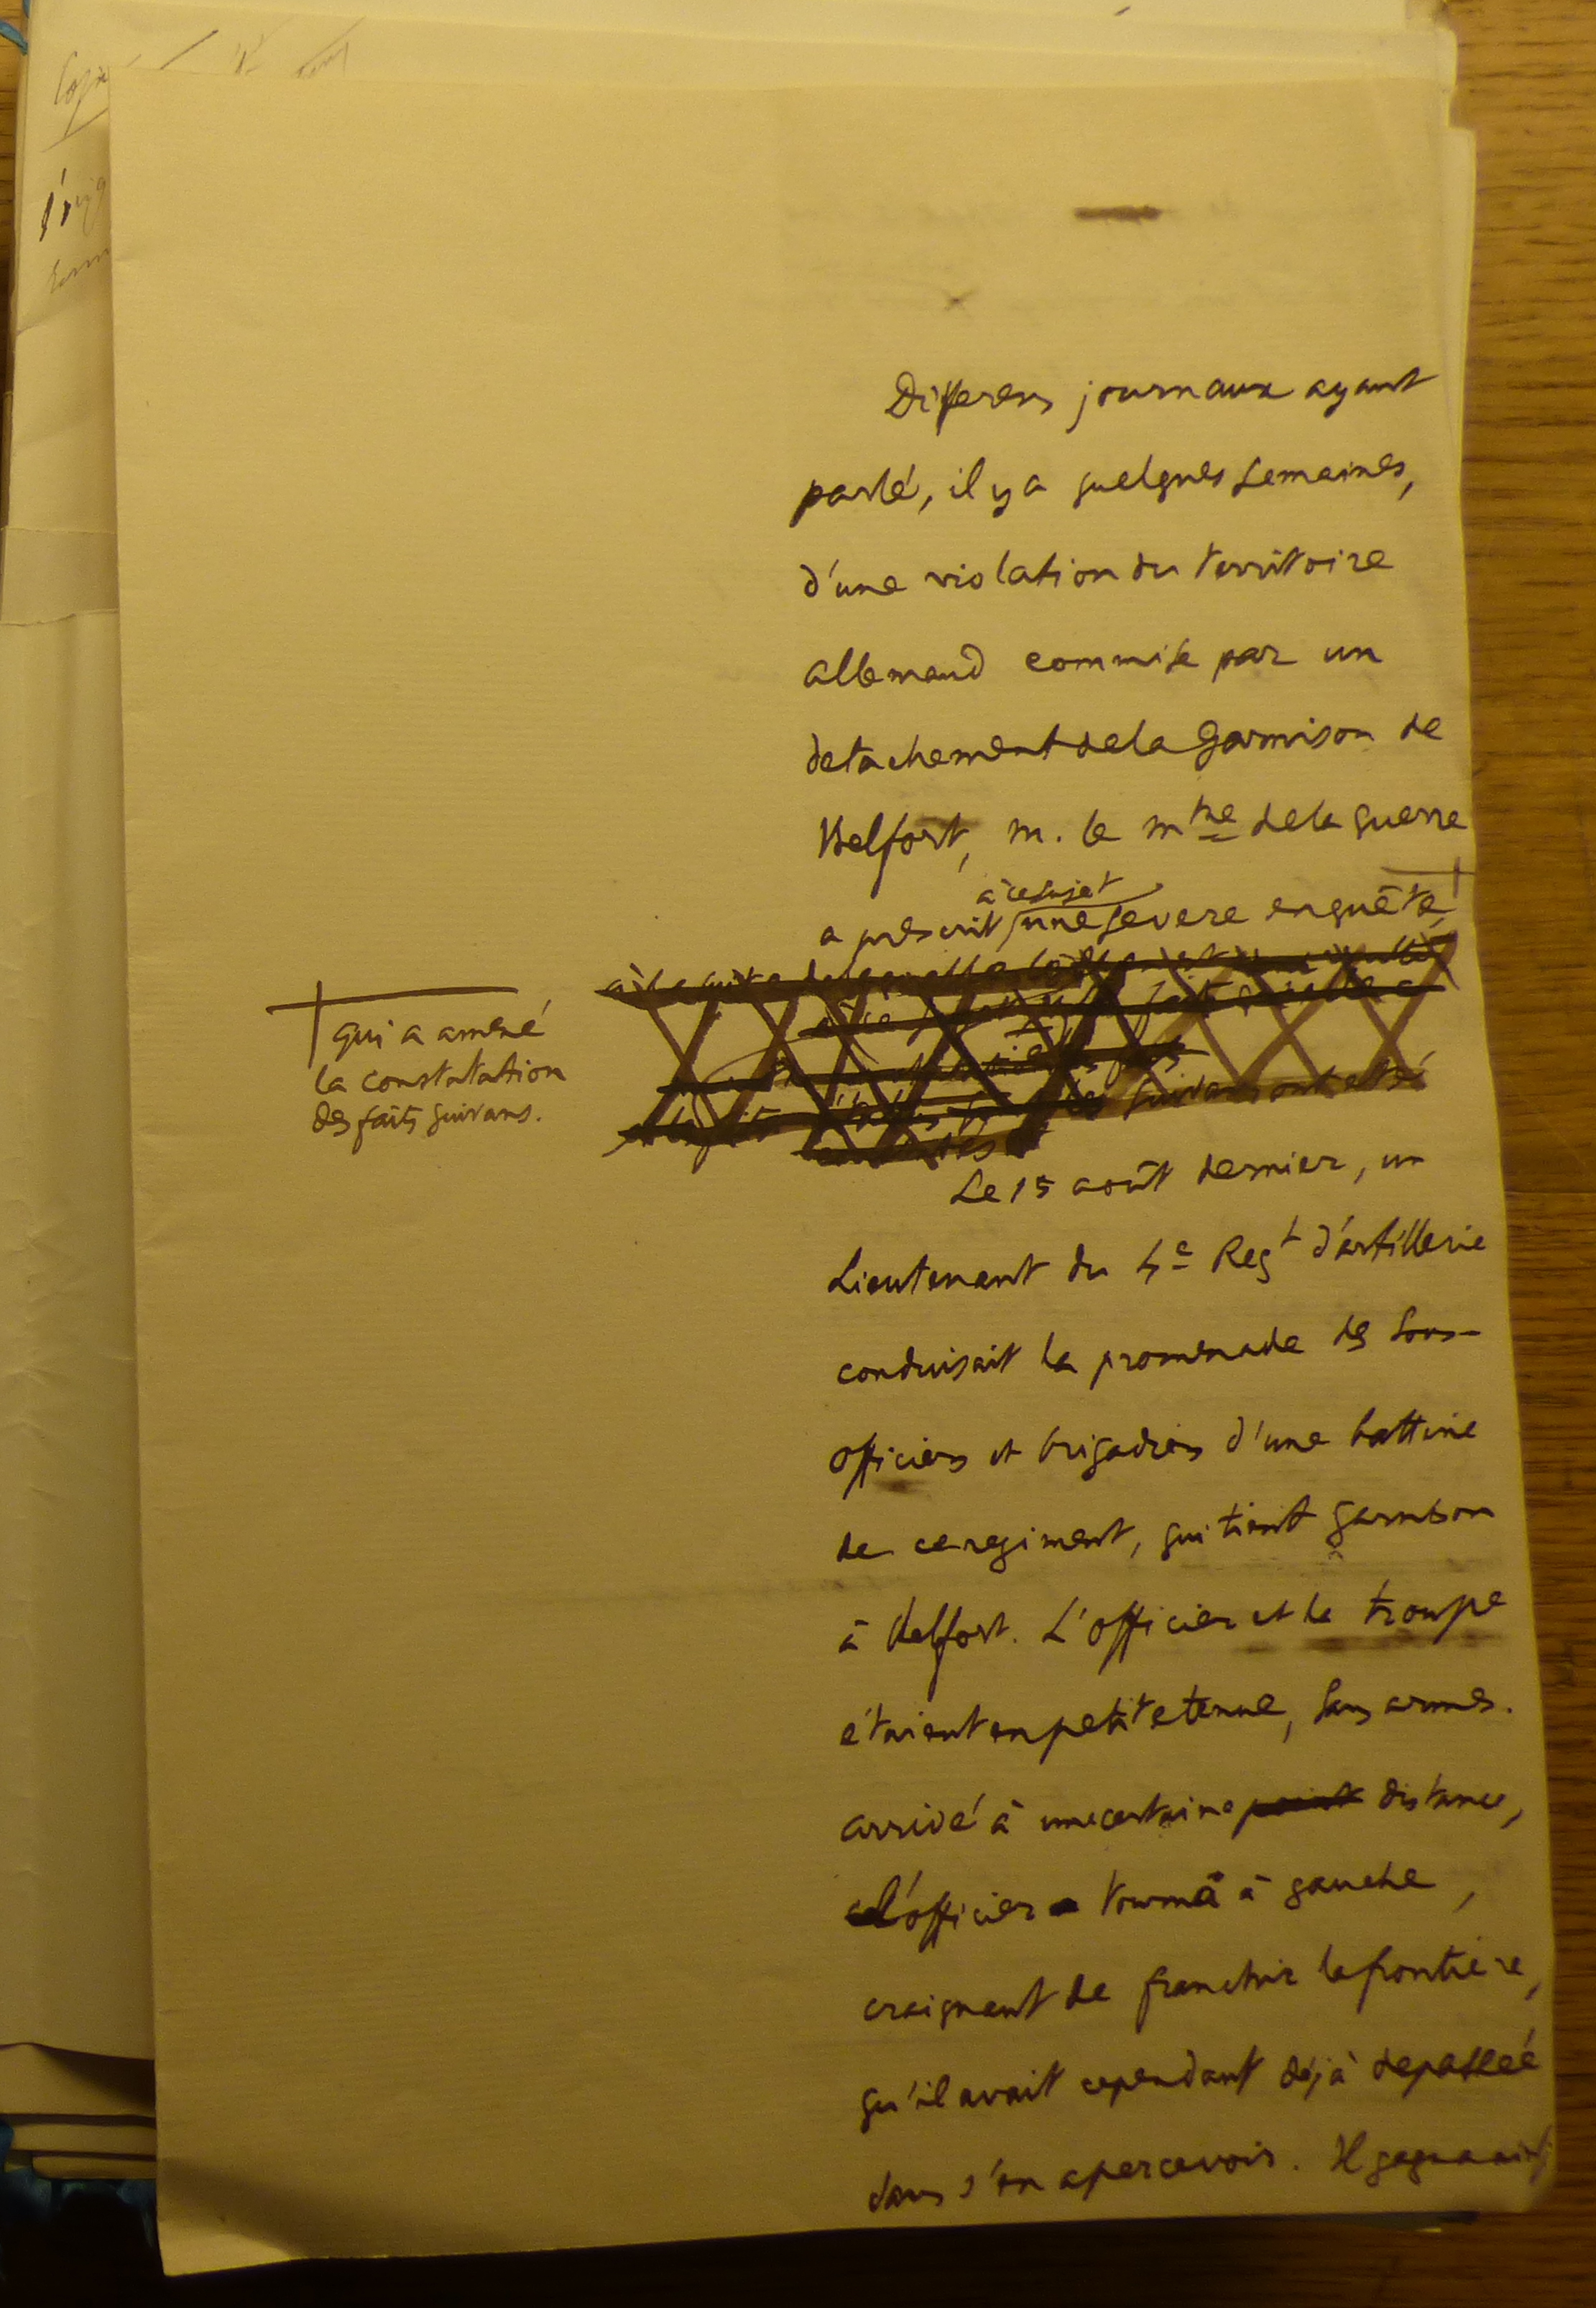 Differens journaux ayant
parlé, il y a quelques semaines,
d'une violation du territoire
allemand commise par un
detachement de la Garnison de
Belfort, m. le mtre de la guerre
à ce sujet
a prescrit une severe enquête,
qui a amené
la constatation
des faits suivans.
suivans ont été
Le 15 août dernier, un
Lieutenant du 4e Regt d'artillerie
conduisait la promenade des Sous-
officiers et brigadiers d'une batterie
de ce regiment, qui tient garnison
à Belfort. L'officier et la troupe
étaient en petite tenue, sans armes.
arrivé à une certaine point distance,
l'officier tourna à gauche,
craignant de franchir la frontière,
qu'il avait cependant déjà depassée
sans s'en apercevoir. Il gagna ainsi